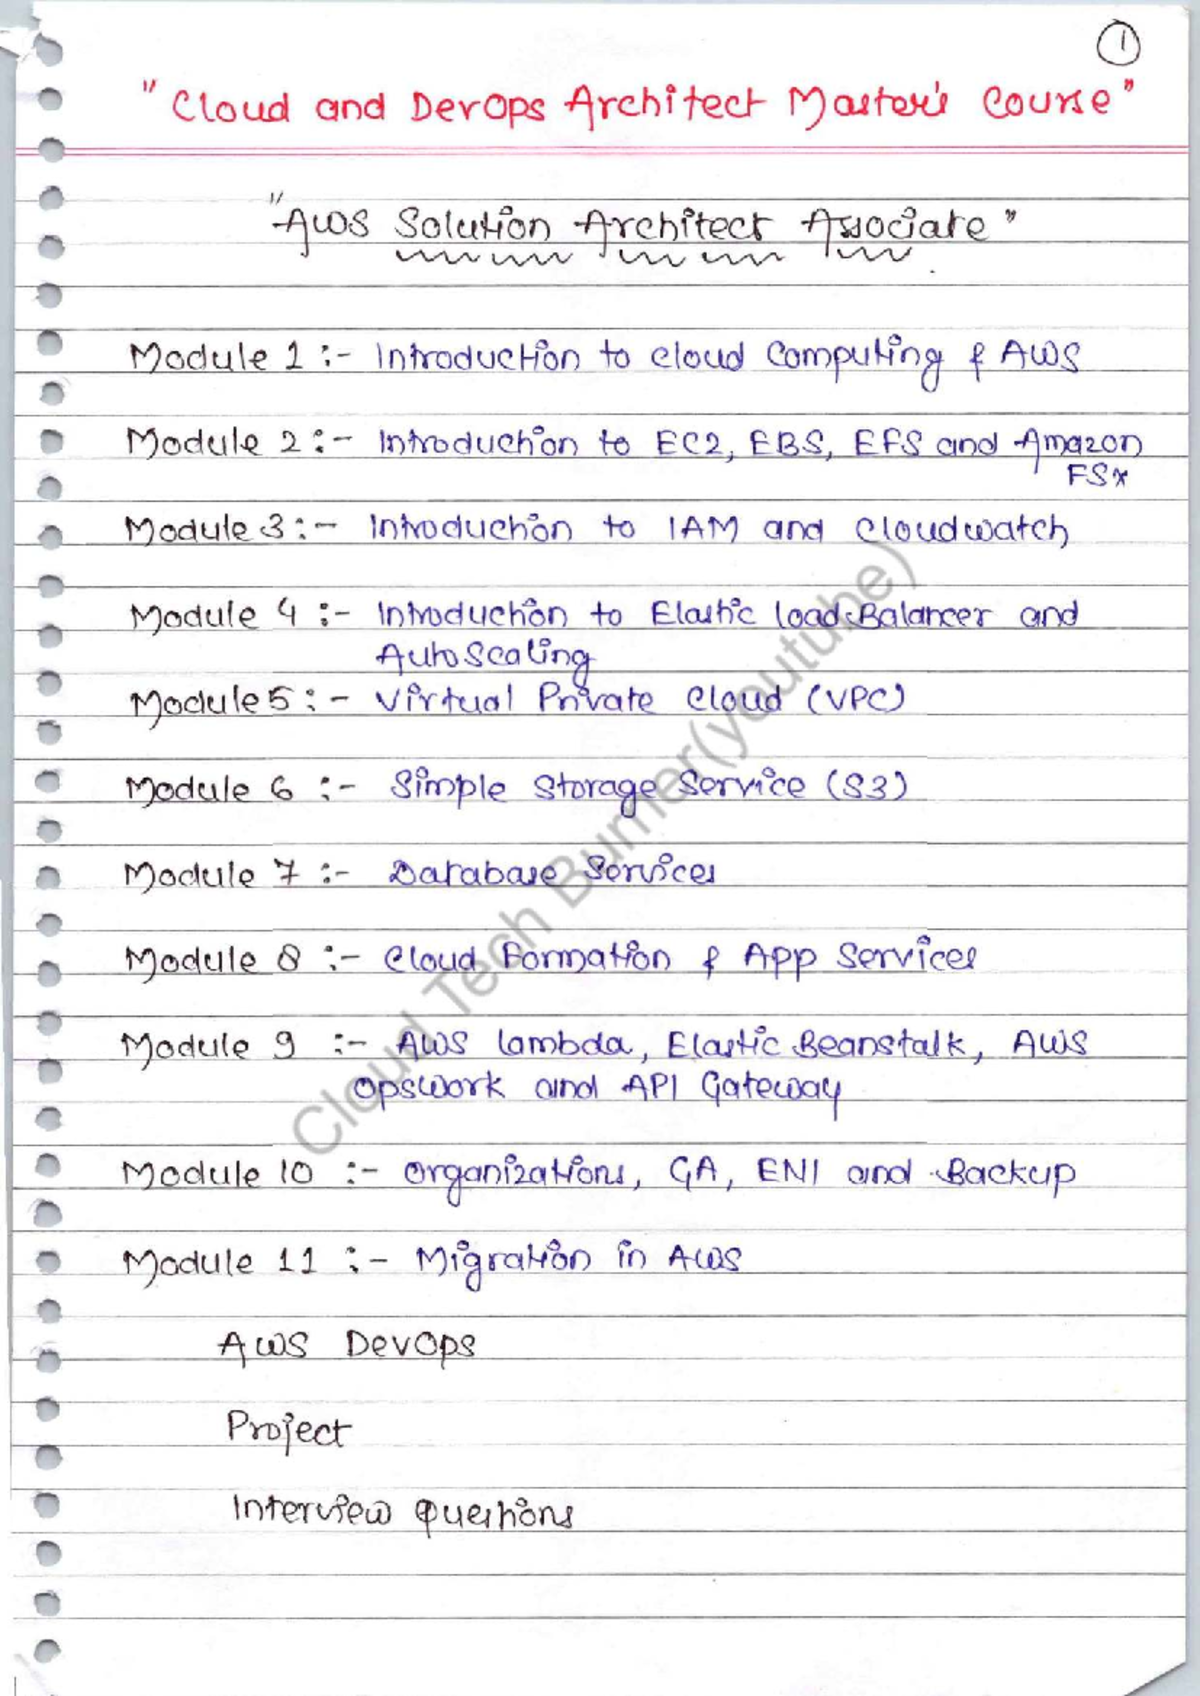 1
"Cloud and DevOps Architect Master's Course"
"AWS Solution Architect Associate"
Module 1 :- Introduction to cloud Computing & AWS
Module 2 :- Introduction to EC2, EBS, EFS and Amazon
FSx
Module 3 :- Introduction to IAM and Cloudwatch
Module 4 :- Introduction to Elastic load Balancer and
AutoScaling
Module 5 :- Virtual Private Cloud (VPC)
Module 6 :- Simple Storage Service (S3)
Module 7 :- Database Services
Module 8 :- Cloud Formation & App Services
Module 9 :- AWS lambda, Elastic Beanstalk, AWS
Opswork and API Gateway
Module 10 :- Organizations, GA, ENI and Backup
Module 11 :- Migration in AWS
AWS DevOps
Project
Interview Questions
Cloud Tech Burner(youtube)